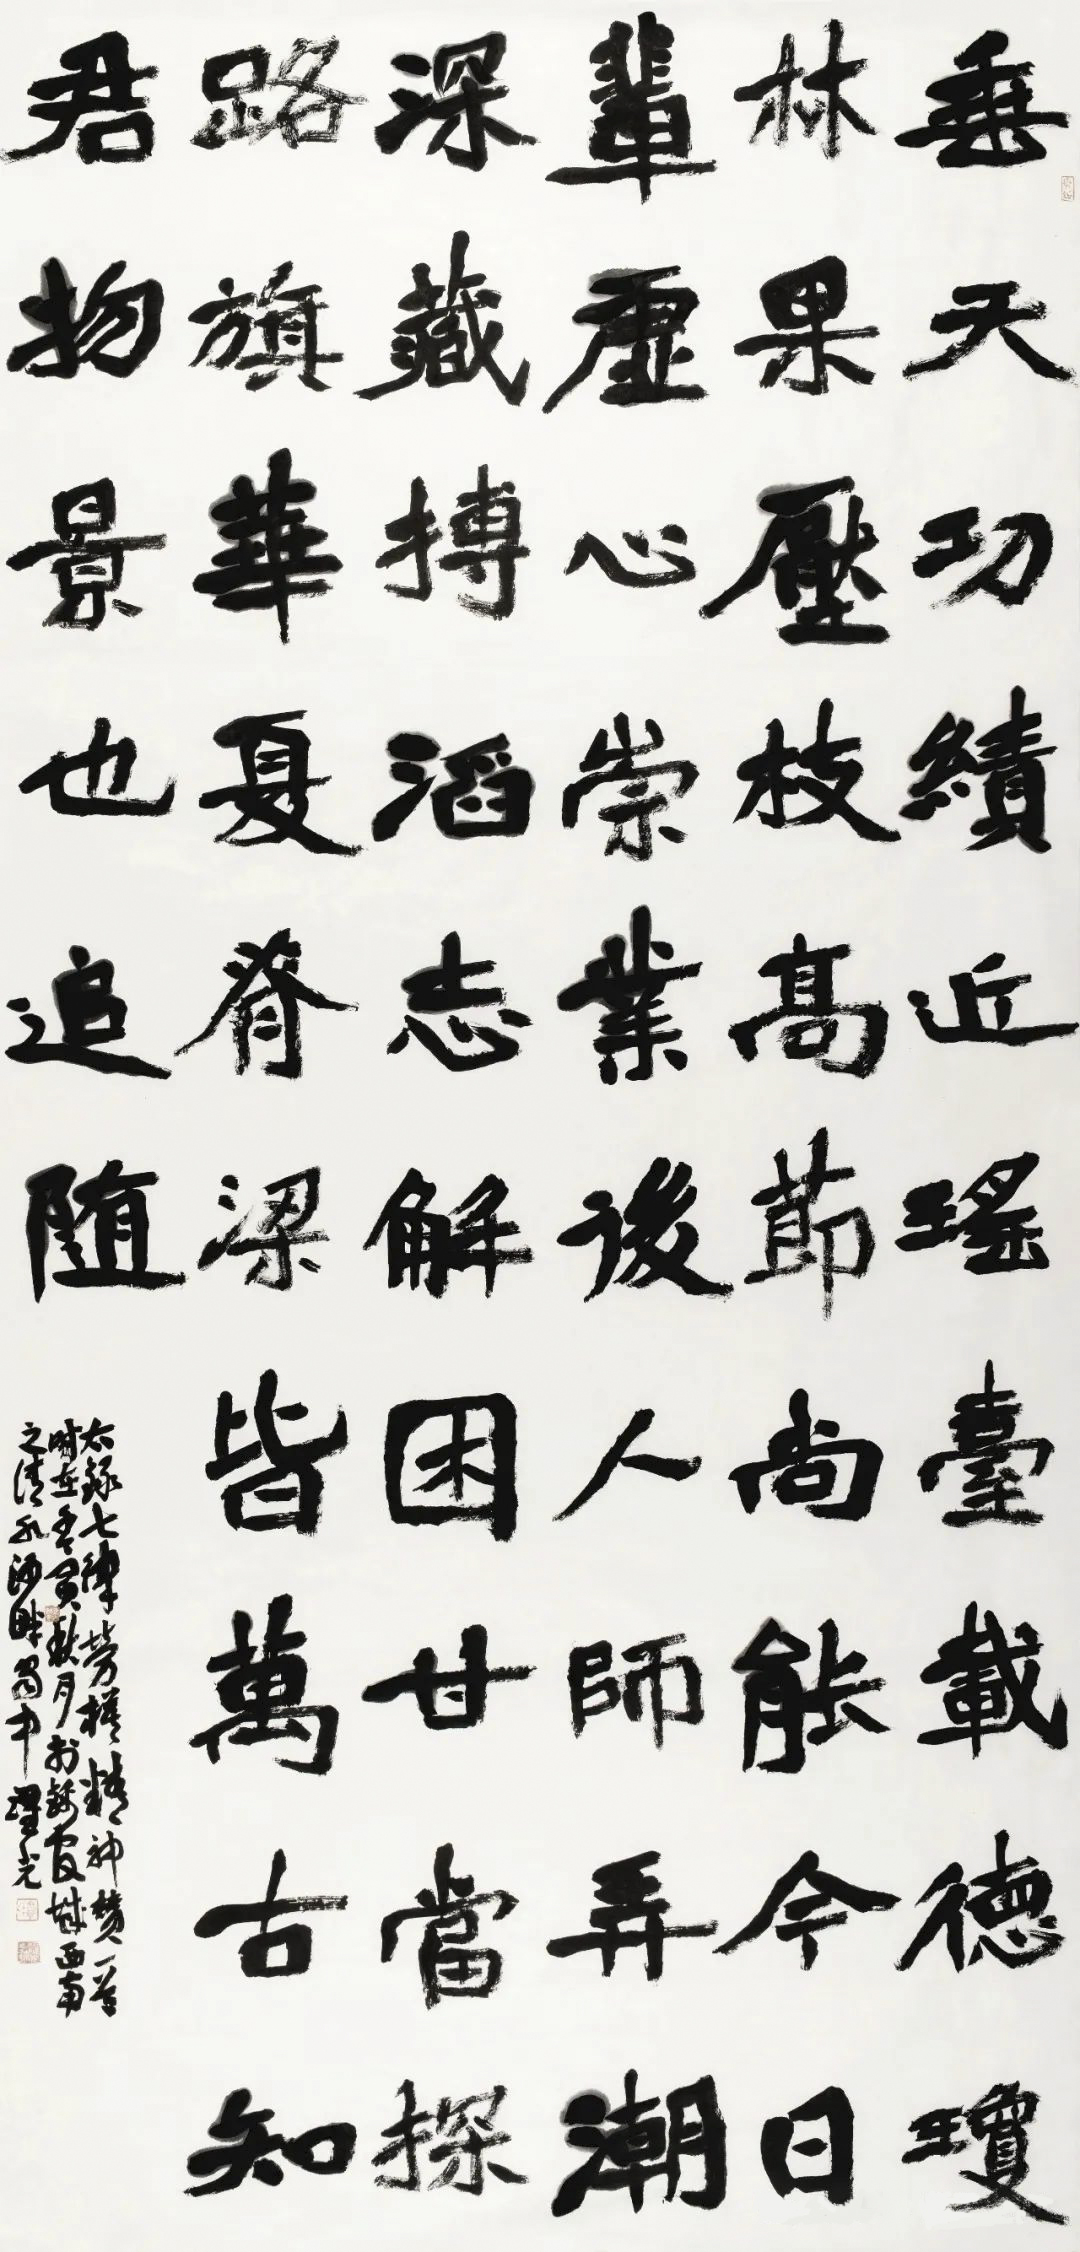 垂天功績近瑤臺載德瓊
林果壓枝高節尚能今日
輩虛心崇業後人師弄潮
深藏搏滔志解困甘當探
路旗華夏脊梁皆萬古知
君物景也追随
右錄七律勞模精神贊一首
時在壬寅秋月於錦官城西南
之清水河畔蜀中